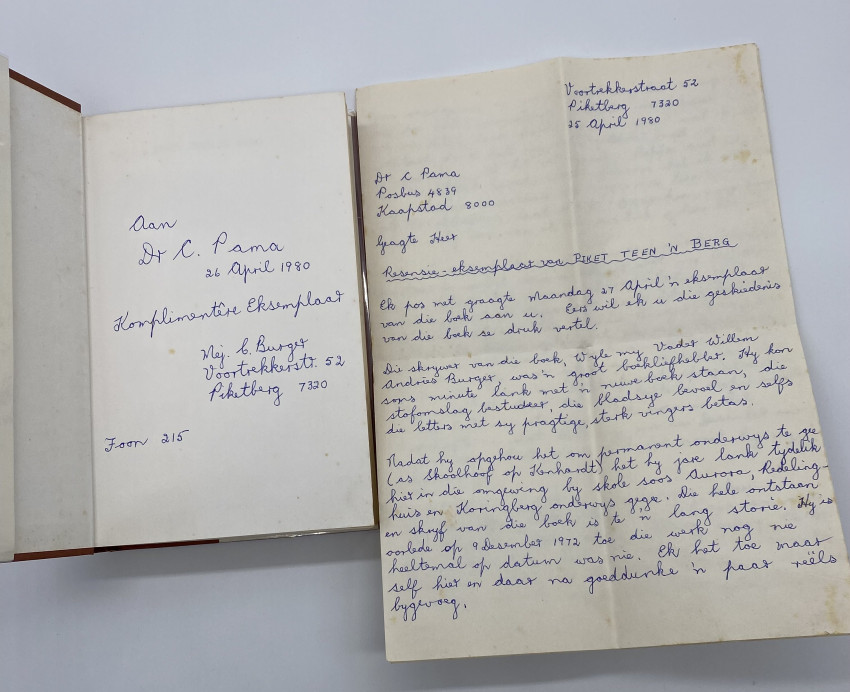 Aan
Dr C. Pama
26 April 1980
Komplimentêre Eksemplaar
Mej. C. Burger
Voortrekkerstr. 52
Piketberg 7320
Foon 215
Voortrekkerstraat 52
Piketberg 7320
25 April 1980
Dr C Pama
Posbus 4839
Kaapstad 8000
Geagte Heer
Resensie-eksemplaar van PIKET TEEN 'N BERG
Ek pos met graagte Maandag 27 April 'n eksemplaar
van die boek aan u. Eers wil ek u die geskiedenis
van die boek se druk vertel.
Die skrywer van die boek, Wyle my Vader Willem
Andries Burger, was 'n groot boekliefhebber. Hy kon
soms minute lank met 'n nuwe boek staan, die
stofomslag bestudeer, die bladsye bevoel en selfs
die letters met sy pragtige, sterk vingers betas.
Nadat hy opgehou het om permanent onderwys te gee
(as Skoolhoof op Kenhardt) het hy jare lank tydelik
hier in die omgewing by skole soos Aurora, Redeling-
huis en Koringberg onderwys gegee. Die hele ontstaan
en skryf van die boek is te 'n lang storie. Hy is
oorlede op 9 Desember 1972 toe die werk nog nie
heeltemal op datum was nie. Ek het toe maar
self hier en daar na goeddunke 'n paar reëls
bygevoeg.